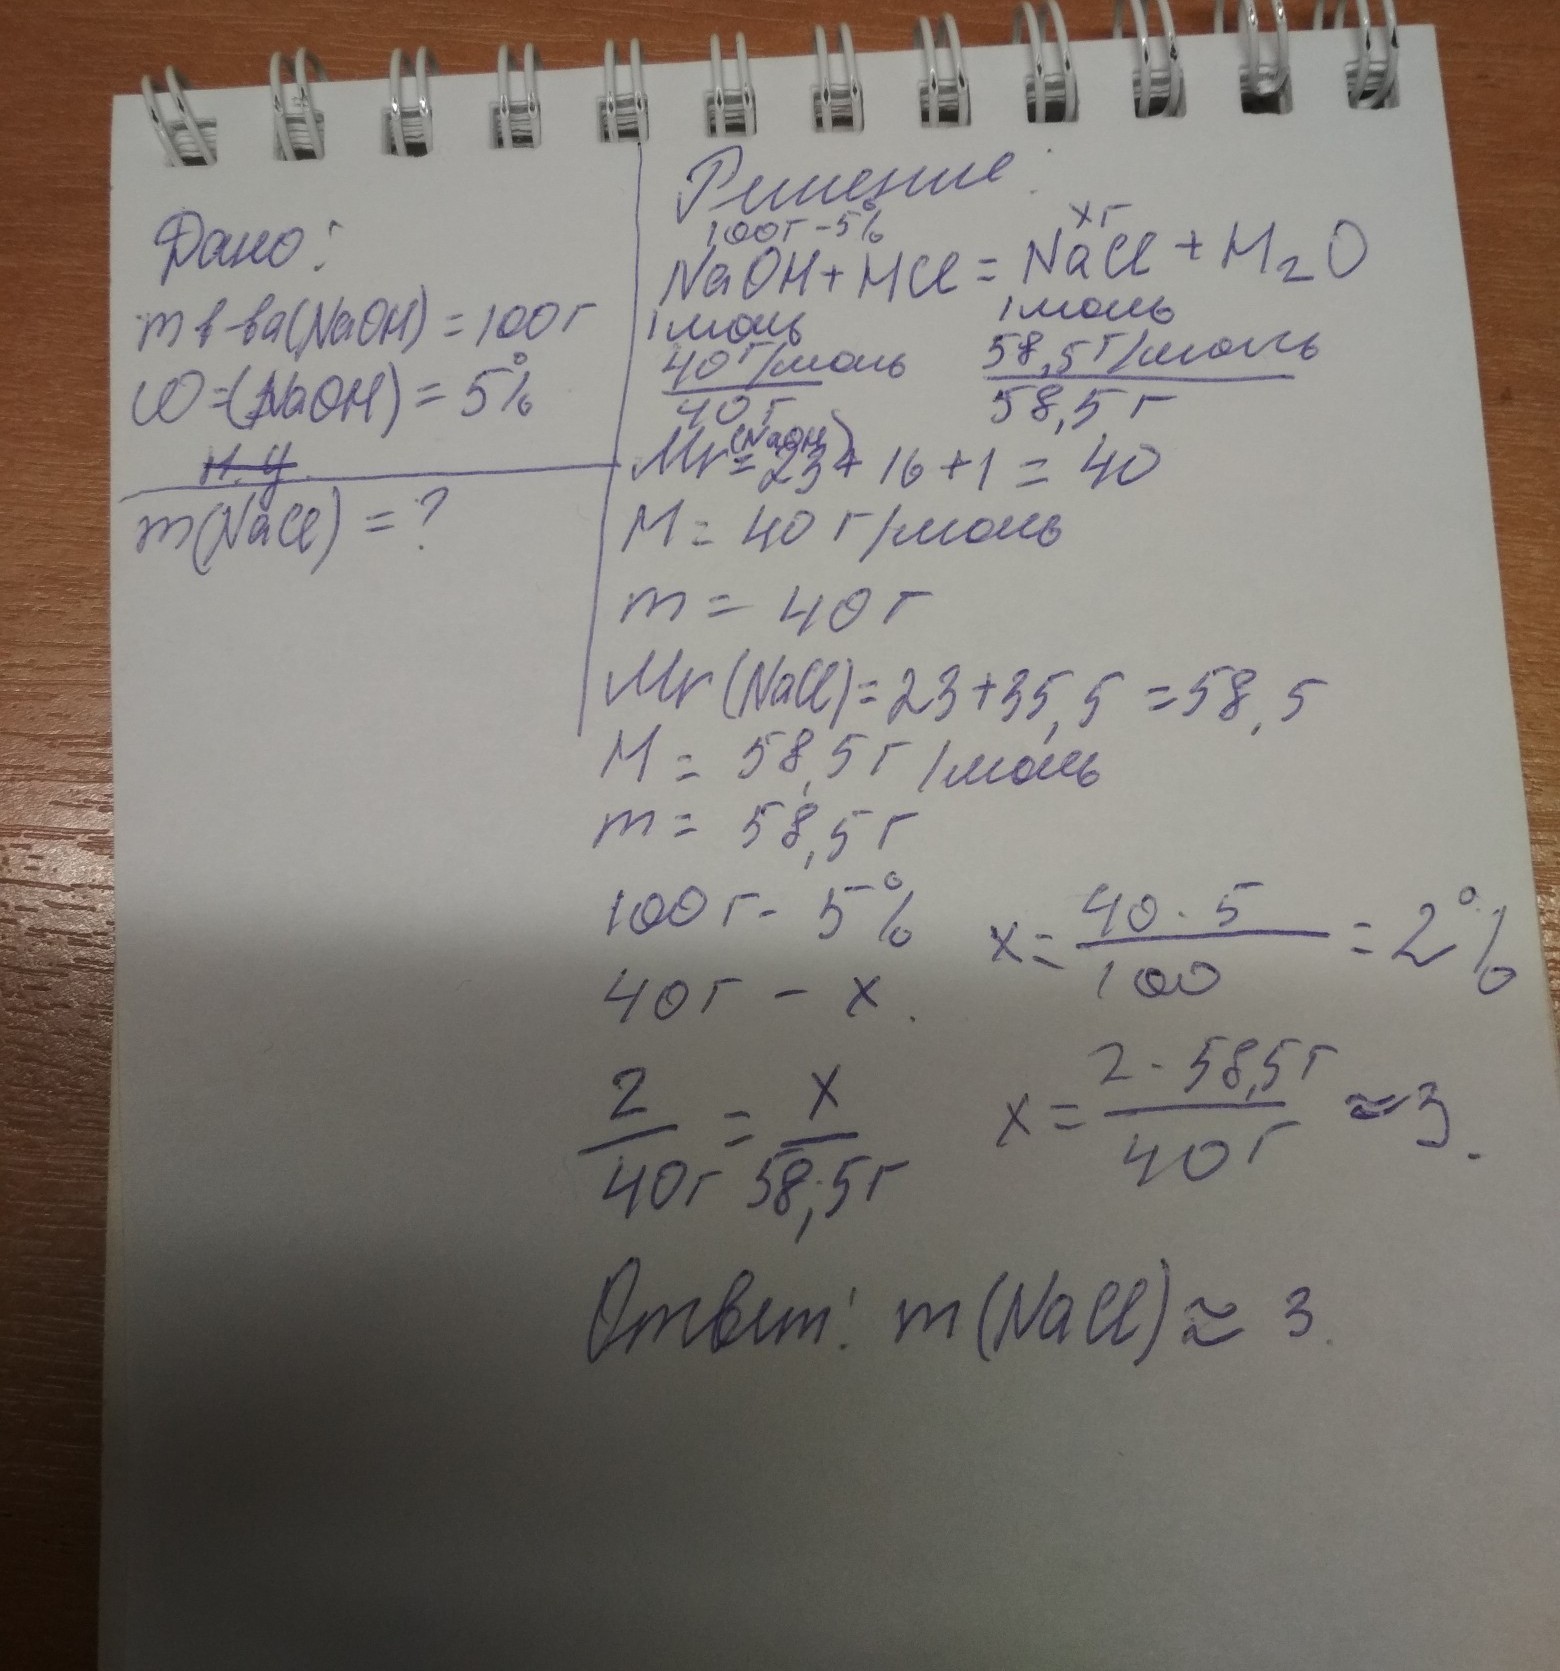 Дано:
m в-ва(NaOH) = 100г
ω=(NaOH) = 5%
н.у.
m(NaCl) = ?
Решение:
100г-5% xг
NaOH + HCl = NaCl + H2O
1моль 1моль
40г/моль 58,5г/моль
40г 58,5г
Mr(NaOH) = 23 + 16 + 1 = 40
M = 40 г/моль
m = 40г
Mr(NaCl) = 23 + 35,5 = 58,5
M = 58,5г/моль
m = 58,5г
100г - 5% x = 40 · 5 / 100 = 2%
40г - x.
2/40г = x/58,5г x = 2 · 58,5г / 40г ≈ 3.
Ответ: m(NaCl) ≈ 3.